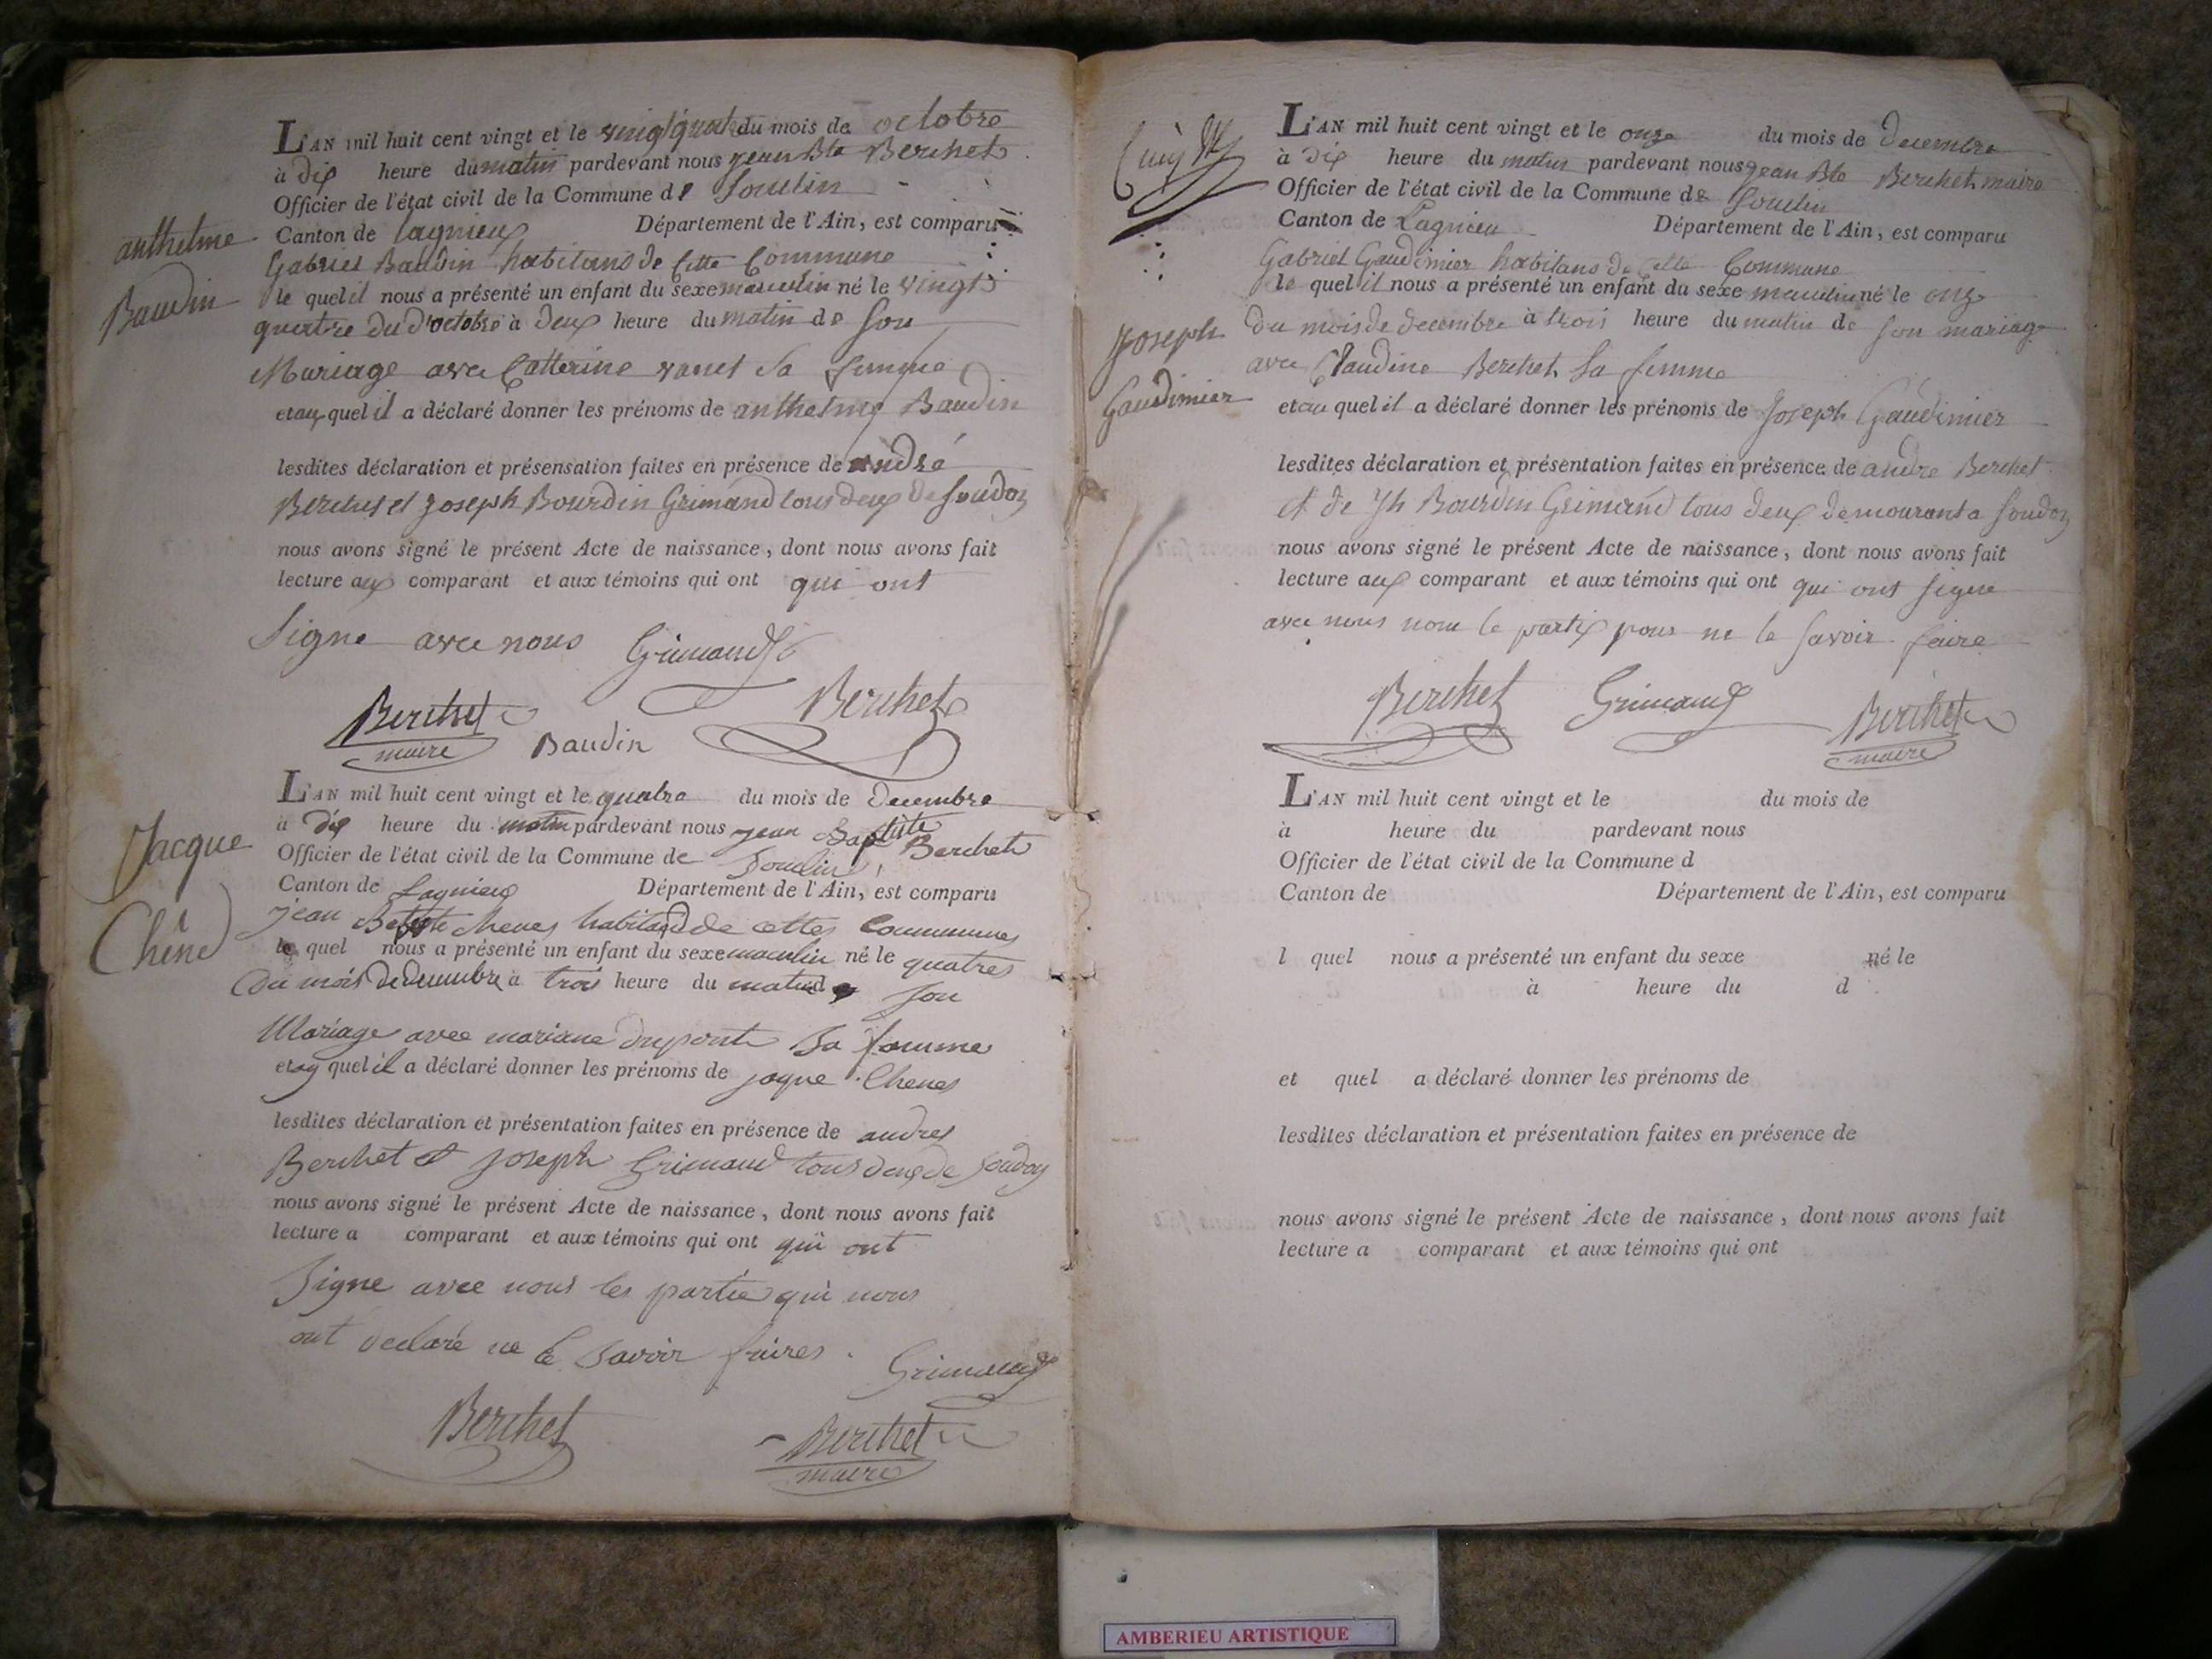 L'AN mil huit cent vingt et le vingt quatre du mois de octobre
à dix heure du matin pardevant nous jean Bte Berthet
Officier de l'état civil de la Commune de Souclin
Canton de lagnieux Département de l'Ain, est comparu
anthelme
Baudin
Gabriel Baudin habitans de Cette Commune
le quel il nous a présenté un enfant du sexe masculin né le vingt
quatre du d'octobre à deux heure du matin de son
Mariage avec Catterine vanet sa femme
et auquel il a déclaré donner les prénoms de anthelme Baudin
lesdites déclaration et présensation faites en présence de andré
Berthet et joseph Bourdin Grimand tous deux de Soudon
nous avons signé le présent Acte de naissance, dont nous avons fait
lecture aux comparant et aux témoins qui ont qui ont
Signe avec nous Grimand
Berthet Berthet
maire Baudin
L'AN mil huit cent vingt et le quatre du mois de decembre
à dix heure du matin pardevant nous jean Baptiste Berthet
Officier de l'état civil de la Commune de Souclin
Canton de Lagnieux Département de l'Ain, est comparu
Jacque
Chêne
jean Batiste chenes habitand de cettes Communes
le quel nous a présenté un enfant du sexe masculin né le quatres
du mois de decembre à trois heure du matin de son
Mariage avec mariane dupont Sa famme
et au quel il a déclaré donner les prénoms de jaque Chenes
lesdites déclaration et présentation faites en présence de andres
Berthet et joseph Grimand tous deux de Soudon
nous avons signé le présent Acte de naissance, dont nous avons fait
lecture a comparant et aux témoins qui ont qui ont
Signe avec nous les partie qui nous
ont declaré ne le Savoir faires. Grimand
Berthet Berthet
maire
L'AN mil huit cent vingt et le onze du mois de decembre
à dix heure du matin pardevant nous jean Bte Berthet maire
Officier de l'état civil de la Commune de Souclin
Canton de Lagnieu Département de l'Ain, est comparu
Gabriel Gaudimier habitans de Cette Commune
le quel il nous a présenté un enfant du sexe masculin né le onze
Joseph
Gaudimier
du mois de decembre à trois heure du matin de son mariage
avec Claudine Berthet Sa femme
et au quel il a déclaré donner les prénoms de Joseph Gaudimier
lesdites déclaration et présentation faites en présence de andre Berthet
et de Jh Bourdin Grimand tous deux demourant a Soudon
nous avons signé le présent Acte de naissance, dont nous avons fait
lecture aux comparant et aux témoins qui ont qui ont signe
avec nous nom le partix pour ne le savoir faire
Berthet Grimand Berthet
maire
L'AN mil huit cent vingt et le du mois de
à heure du pardevant nous
Officier de l'état civil de la Commune d
Canton de Département de l'Ain, est comparu
l quel nous a présenté un enfant du sexe né le
à heure du d
et quel a déclaré donner les prénoms de
lesdites déclaration et présentation faites en présence de
nous avons signé le présent Acte de naissance, dont nous avons fait
lecture a comparant et aux témoins qui ont
AMBERIEU ARTISTIQUE